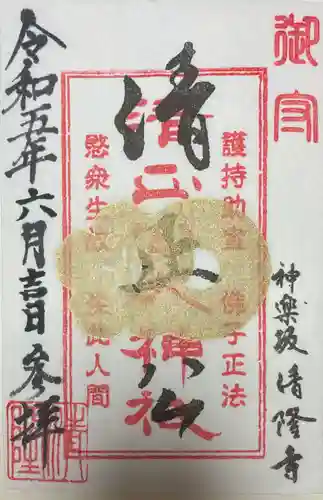 御守
神樂坂 清隆寺
護持助宣 佛子正法
清正公
愍衆生故 生此人間
令和五年六月吉日 参拝